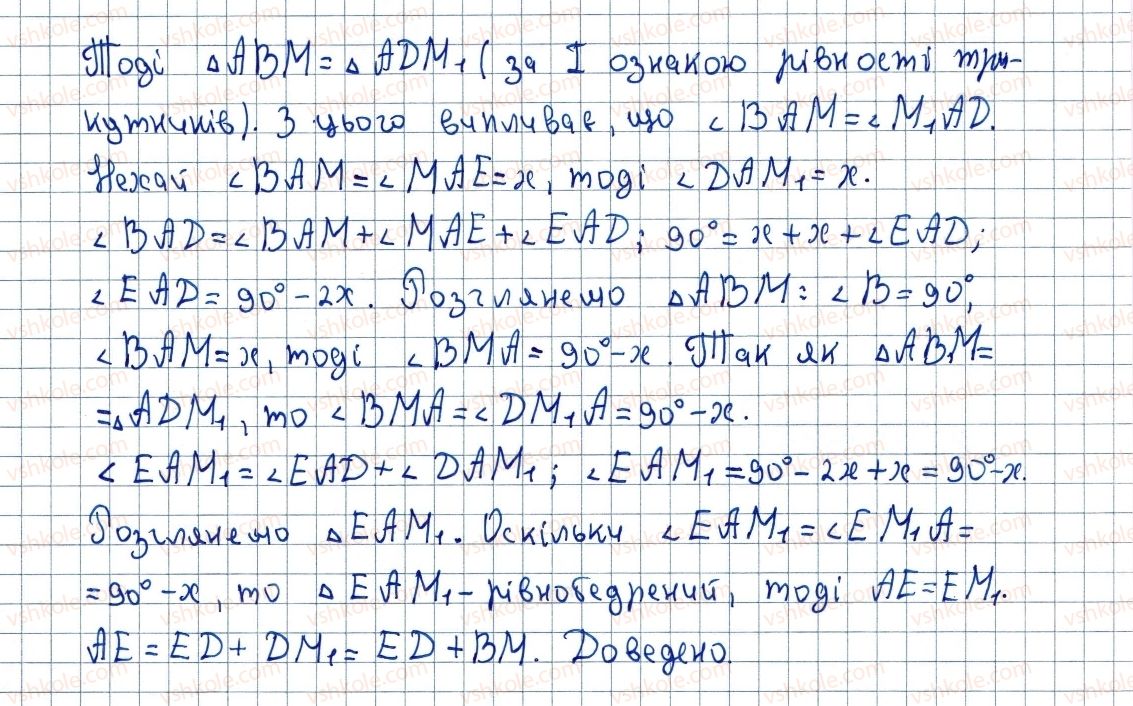 Тоді △ABM = △ADM₁ (за I ознакою рівності три-
кутників). З цього випливає, що ∠BAM = ∠M₁AD.
Нехай ∠BAM = ∠MAE = x, тоді ∠DAM₁ = x.
∠BAD = ∠BAM + ∠MAE + ∠EAD; 90° = x + x + ∠EAD;
∠EAD = 90° - 2x. Розглянемо △ABM: ∠B = 90°,
∠BAM = x, тоді ∠BMA = 90° - x. Так як △ABM =
= △ADM₁, то ∠BMA = ∠DM₁A = 90° - x.
∠EAM₁ = ∠EAD + ∠DAM₁; ∠EAM₁ = 90° - 2x + x = 90° - x.
Розглянемо △EAM₁. Оскільки ∠EAM₁ = ∠EM₁A =
= 90° - x, то △EAM₁ - рівнобедрений, тоді AE = EM₁.
AE = ED + DM₁ = ED + BM. Доведено.